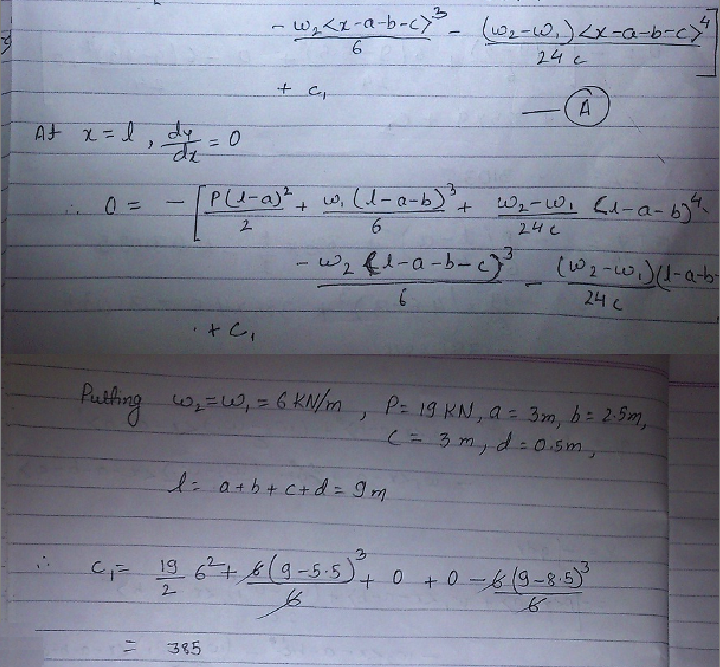 - w₂<x-a-b-c>³/6 - (w₂-w₁)<x-a-b-c>⁴/24c ]
+ c₁
— (A)
At x = l , dy/dx = 0
∴ 0 = - [ P(l-a)²/2 + w₁(l-a-b)³/6 + w₂-w₁/24c <l-a-b>⁴
- w₂(l-a-b-c)³/6 - (w₂-w₁)(l-a-b-/24c
+ c₁
Putting w₂=w₁ = 6 KN/m , P = 19 KN, a = 3m, b = 2.5m,
c = 3m, d = 0.5m,
l = a+b+c+d = 9m
∴ c₁ = 19/2 6² + 6(9-5.5)³/6 + 0 + 0 - 6(9-8.5)³/6
= 385